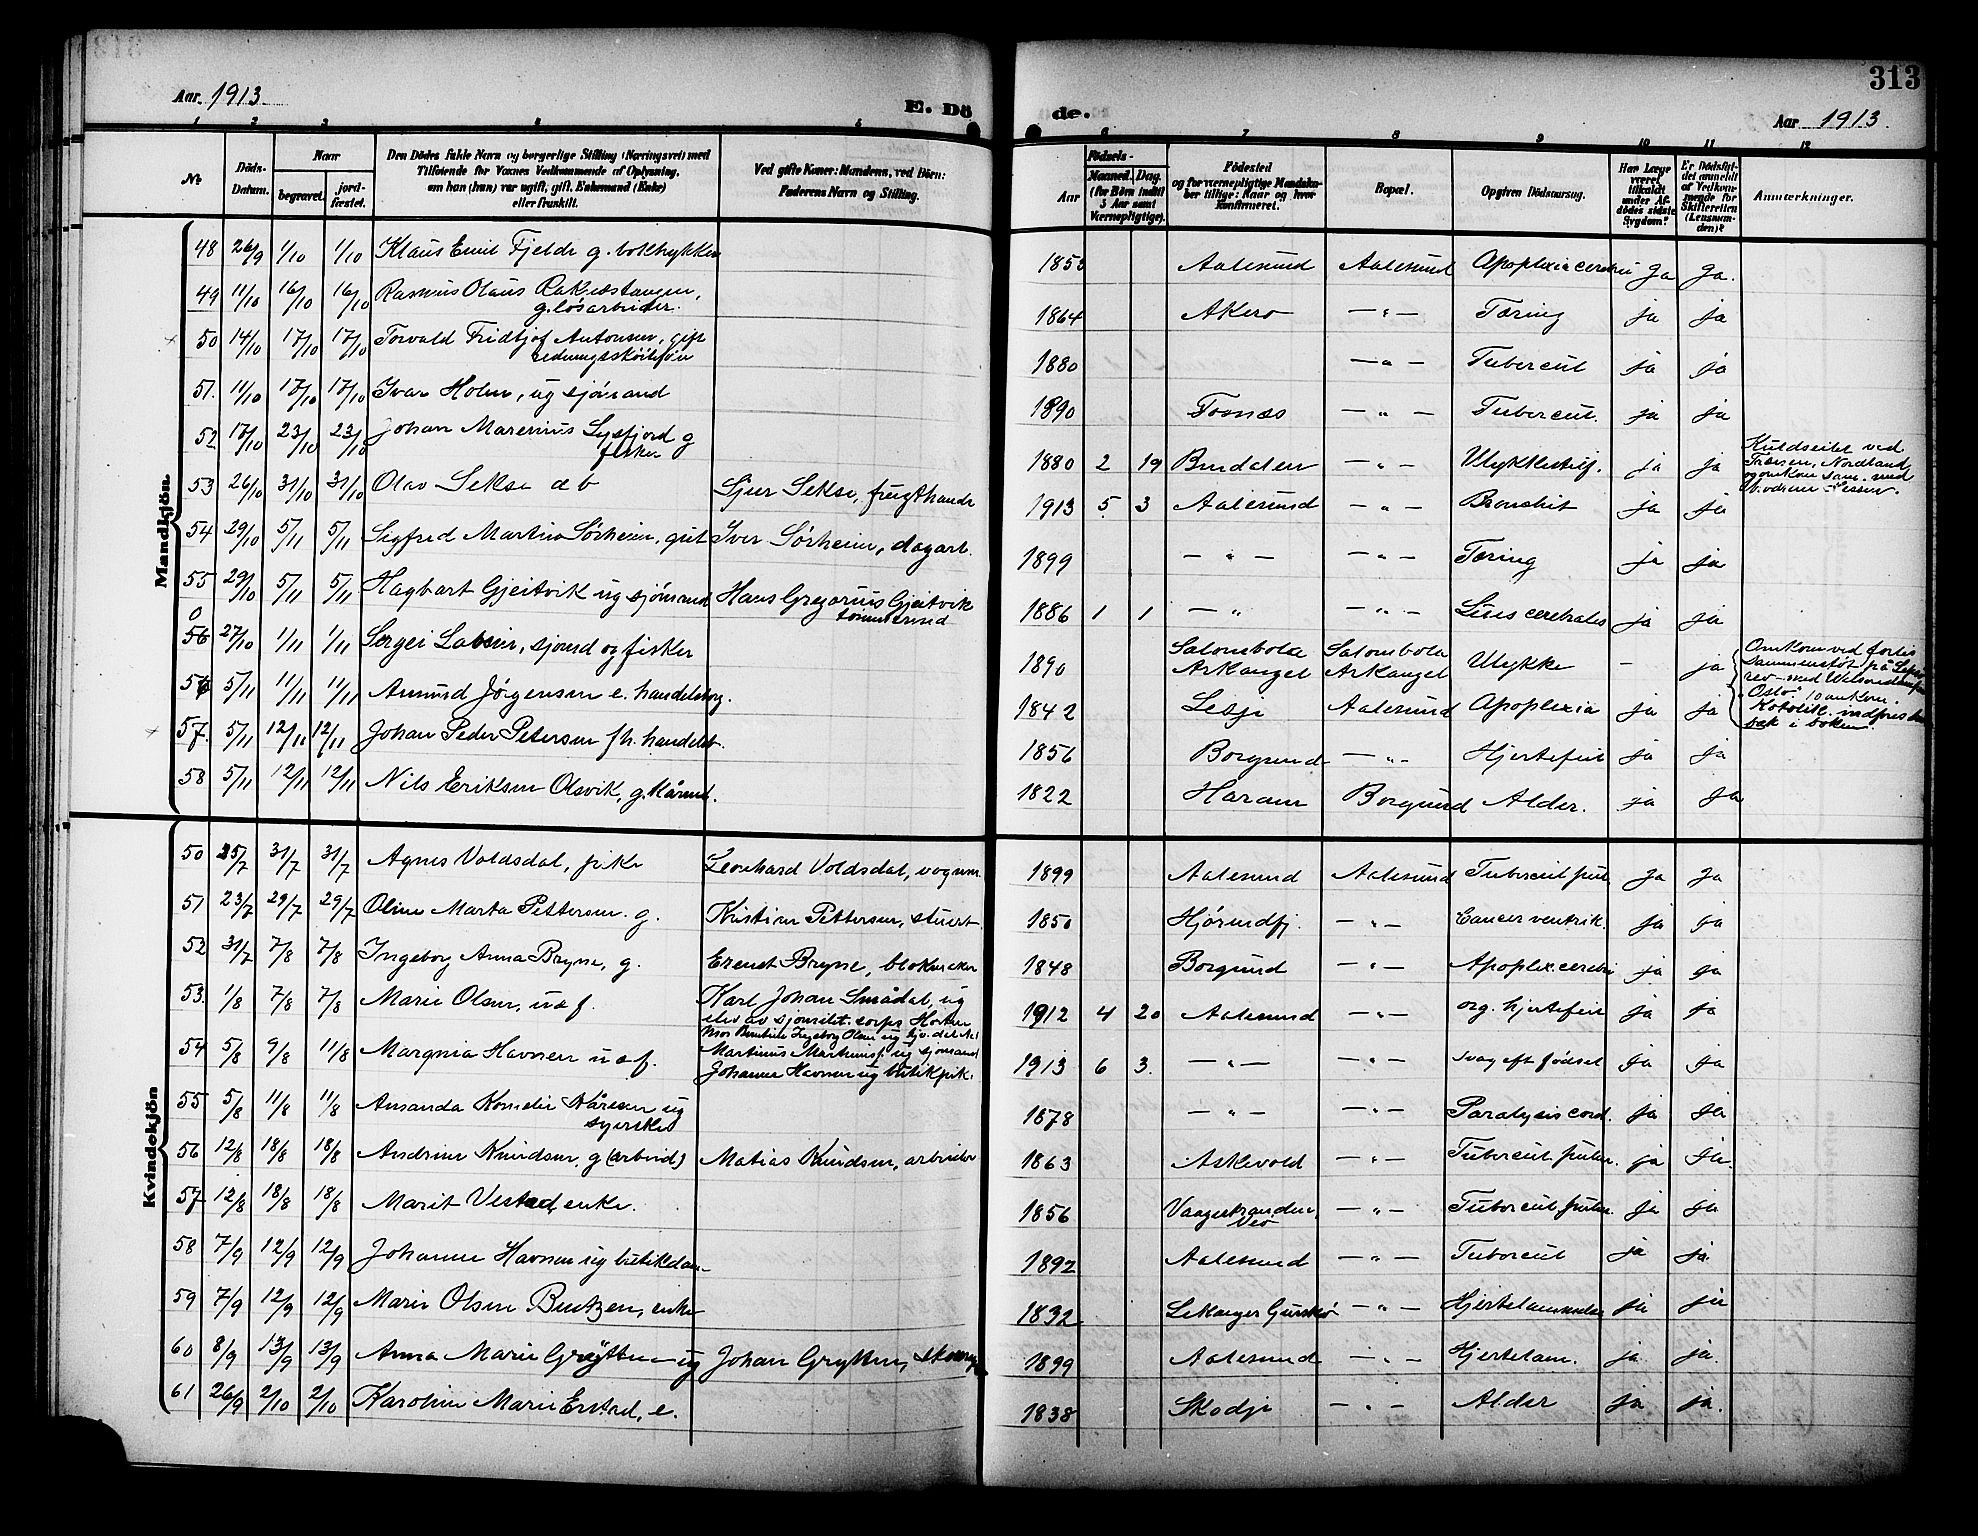 313
Aar 1913
E. Dö
de.
Aar 1913.
1 2 3 4 5
6 7 8 9 10 11 12
No
Döds-Datum.
Naar
begravet.
jord-fæstet.
Den Dödes fulde Navn og borgerlige Stilling (Næringsvei) med
Tilföiende for Voxnes Vedkommende af Oplysning,
om han (hun) var ugift, gift, Enkemand (Enke)
eller fraskilt.
Ved gifte Koner: Mandens, ved Börn:
Faderens Navn og Stilling.
Födsels-
Aar
Maaned. Dag.
(for Börn indtil
3 Aar samt
Værnepligtige).
Födested
og for værnepligtige Mandskaber tillige: Naar og hvor
konfirmeret.
Bopæl.
Opgiven Dödsaarsag.
Har Læge
været
tilkaldt
under Afdödes sidste
Sygdom?
Er Dödsfaldet anmeldt
af Vedkommende for
Skifteretten
(Lensmanden)?
Anmærkninger.
Mandkjön.
48 26/9 1/10 1/10 Klaus Emil Fjelde g. boktrykker 1850 Aalesund Aalesund Apoplexia cerebri Ja Ja.
49 11/10 16/10 16/10 Rasmus Olaus Raknestangen, g. løsarbeider. 1864 Akerø — " — Tæring ja ja
50 14/10 17/10 17/10 Torvald Fridtjof Antonsen, gift redningsskøitefør 1880 — " — Tubercul ja ja
51. 11/10 17/10 17/10 Ivar Holm, ug sjømand 1890 Fosnæs — " — Tubercul. ja ja
52 17/10 23/10 23/10 Johan Marenius Sysfjord g fisker 1880 2 19 Bindalen — " — Ulykkestilf. ja ja Kuldseilet ved
Træen, Nordland,
og omkom sam. med
53 26/10 31/10 31/10 Olav Sekse æb Sjur Sekse, frugthandl 1913 5 3 Aalesund — " — Bronchit ja ja
54 29/10 5/11 5/11 Sigfred Martin Sørheim, gut Iver Sørheim, dagarb. 1899 — " — — " — Tæring ja ja
55 29/10 5/11 5/11 Hagbart Gjeitvik ug sjømand Hans Gregorius Gjeitvik tømmermd 1886 1 1 — " — " — Lues cerebrales ja ja
56 27/10 1/11 1/11 Sergei Labsin, sjømd og fisker 1890 Salombola Arkangel Salombola Arkangel Ulykke — ja Omkom ved forlis
Sammenstøt på
rev med
"Oslo". 10 omkom.
56 5/11 11/11 11/11 Amund Jørgensen e. handelsborg. 1842 Lesje Aalesund Apoplexia ja ja
57. 5/11 12/11 12/11 Johan Peder Petersen fh. handelsb. 1856 Borgund — " — Hjertefeil ja ja
58 5/11 12/11 12/11 Nils Eriksen Olsvik, g. kårmd. 1822 Haram Borgund Alder. ja ja
Kvindekjön
50 25/7 31/7 31/7 Agnes Voldsdal, pike Leonhard Voldsdal, vognm. 1899 Aalesund Aalesund Tubercul pul Ja Ja
51 23/7 29/7 29/7 Oline Marta Pettersen. g. Kristian Pettersen, stuert. 1850 Hjørundfj. — " — Cancer ventrik. ja ja
52 31/7 7/8 7/8 Ingeborg Anna Bryne, g. Erendt Bryne, blokmaker 1848 Borgund — " — Apoplex. cerebri ja ja
53. 1/8 7/8 7/8 Marie Olsen, u æ f. Karl Johan Smådal, ug
elev av sjømilit. corps Horten 1912 4 20 Aalesund — " — org. hjertefeil ja ja
54 5/8 9/8 11/8 Margnia Havnen u æ f. Martinus Martinusf. ug sjømand
Johanne Havnen ug butikpik. 1913 6 3. — " — — " — svag eft fødsel Ja Ja
55 5/8 11/8 11/8 Amanda Kornelie Kåresen ug syerske 1878 — " — — " — Paralysis cord. ja Ja
56 12/8 18/8 18/8 Andrine Knudsen, g (arbeid) Matias Knudsen, arbeider 1863 Askevold — " — Tubercul pulm. ja Ja.
57 12/8 18/8 18/8 Marit Vestad, enke. 1856 Vaagestranden, Veø — " — Tubercul pulm. ja ja
58 7/9 12/9 12/9 Johanne Havnen ug butikdam 1892 Aalesund — " — Tubercul ja ja
59 7/9 12/9 12/9 Marie Olsen Buntzen, enke 1832 Lekanger Gurskø — " — Hjertelammelse ja ja
60 8/9 13/9 13/9 Anna Marie Grytten — ug Johan Grytten, 1899 Aalesund — " — Hjertelam. ja ja.
61 26/9 2/10 2/10 Karoline Marie Erstad, e. 1838 Skodje — " — Alder ja ja.